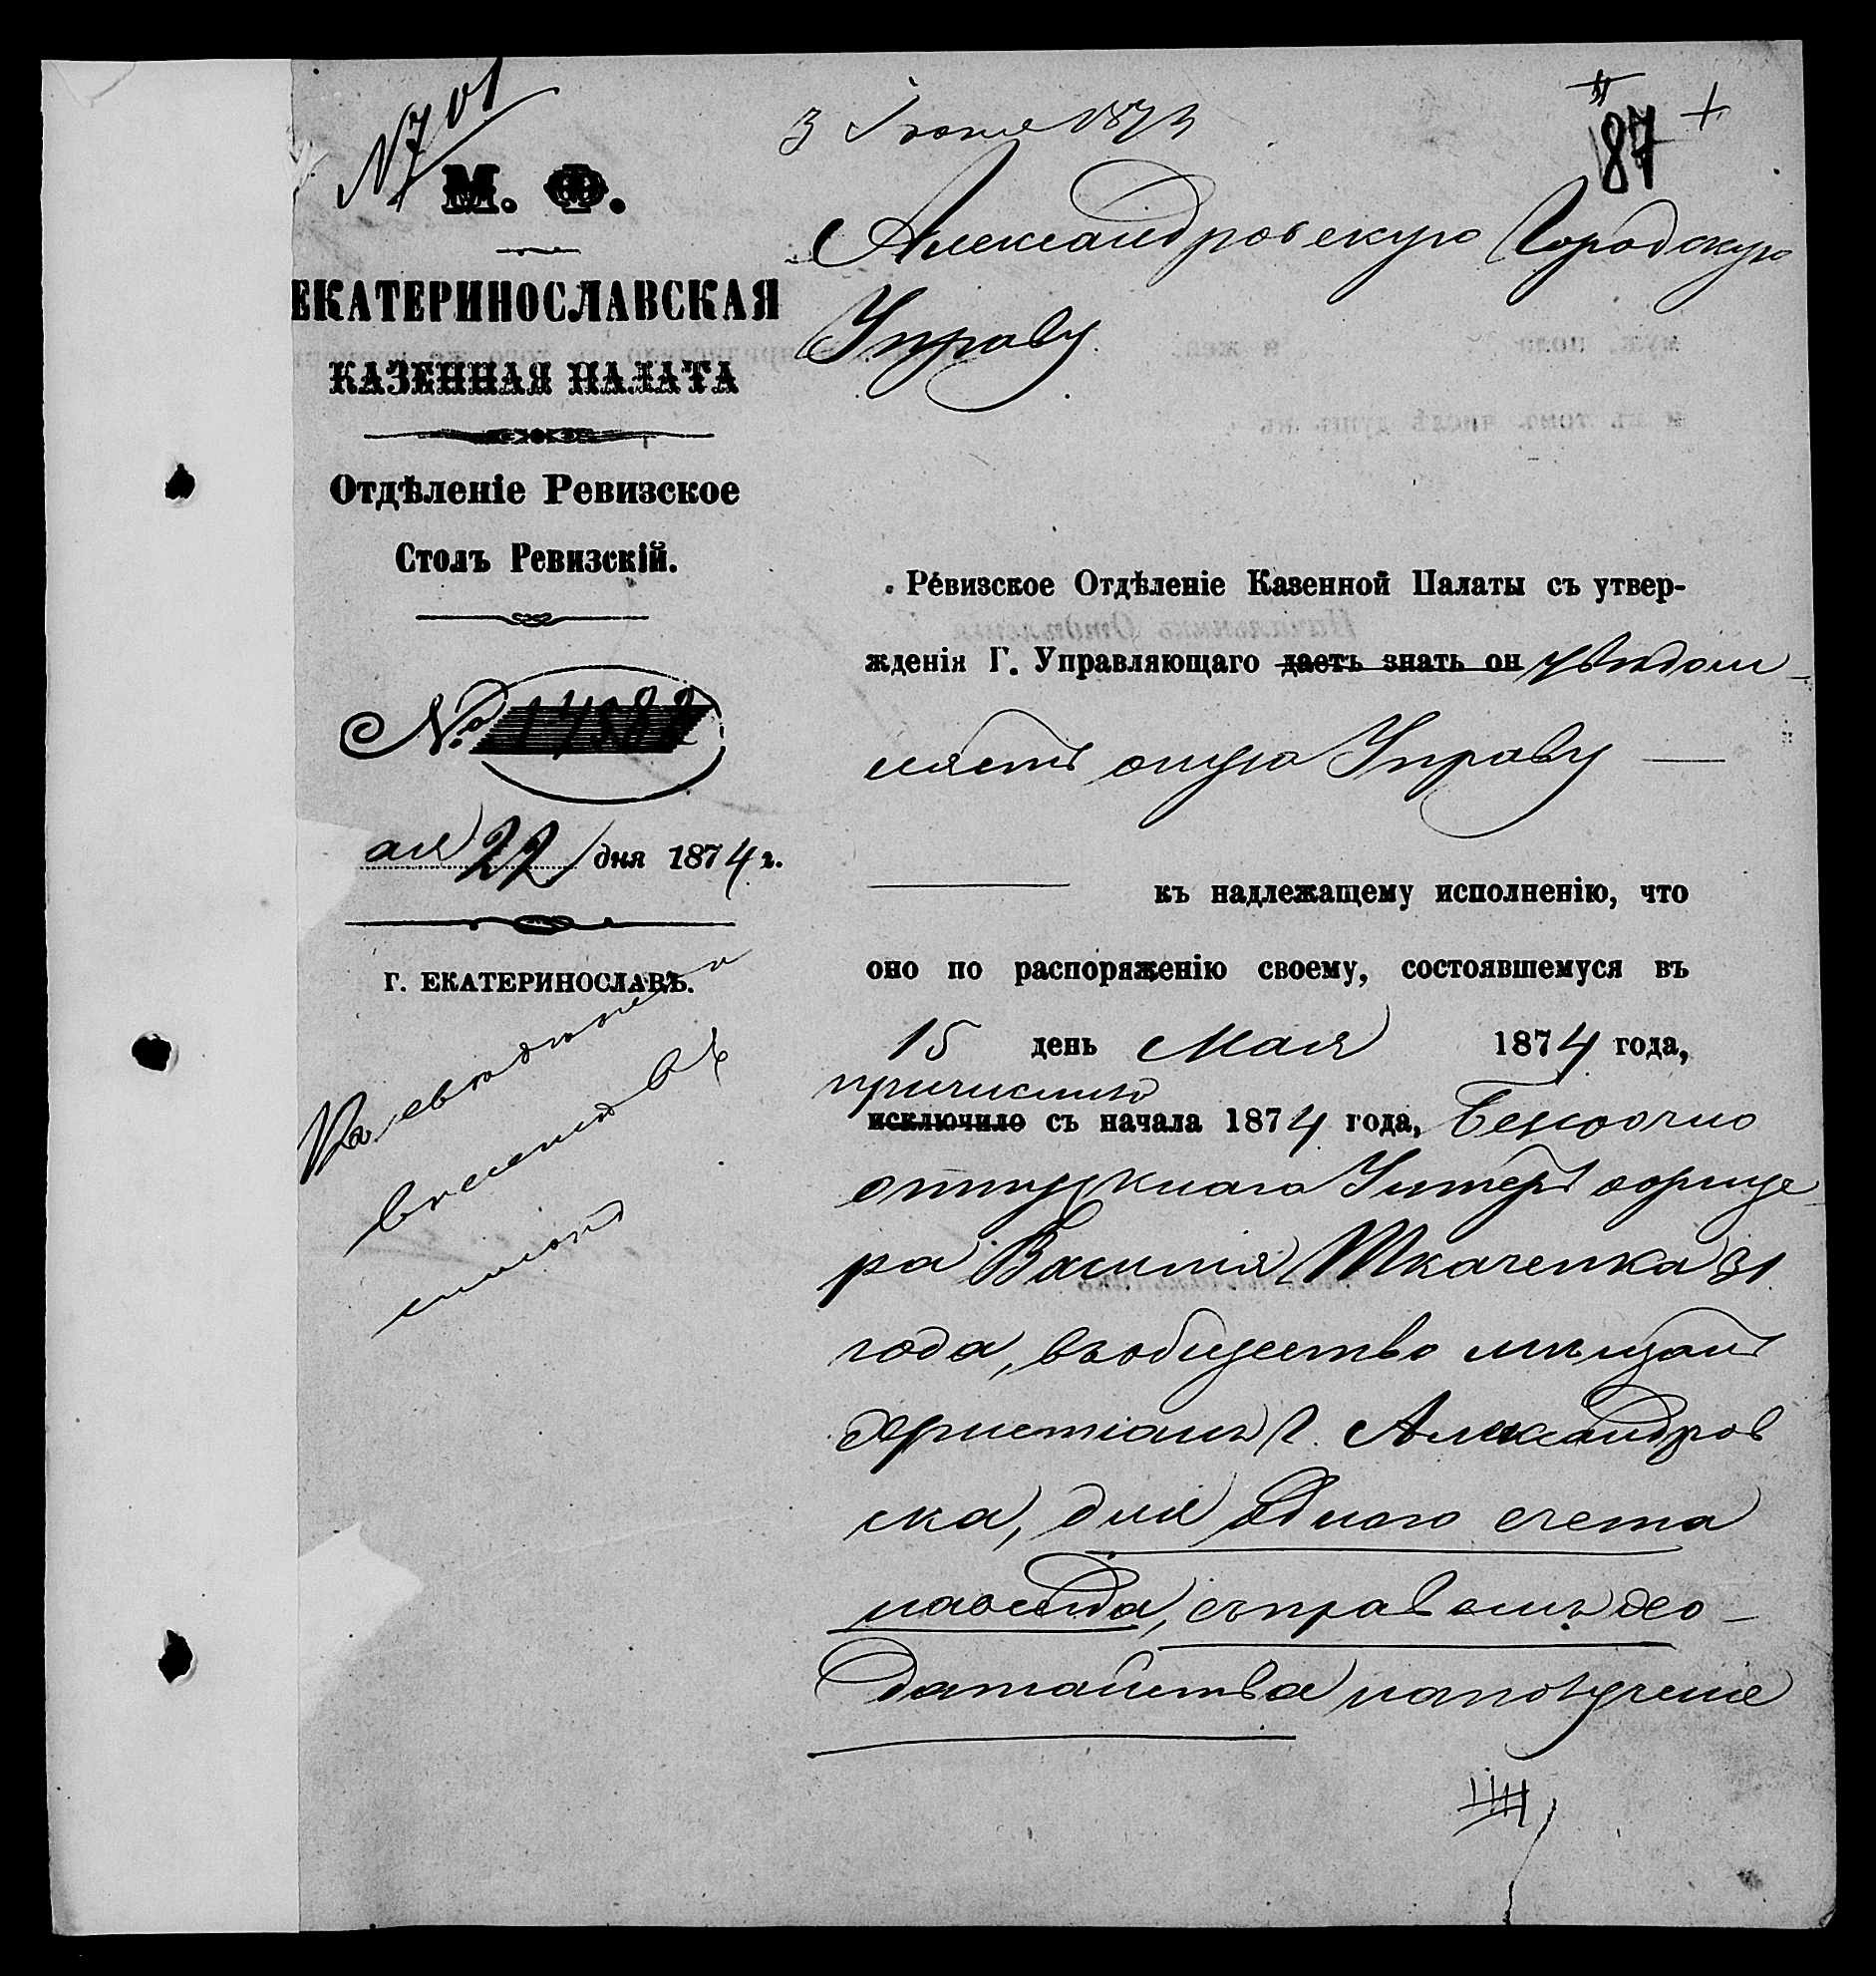 № 701
М. Ф.
ЕКАТЕРИНОСЛАВСКАЯ
КАЗЕННАЯ ПАЛАТА
Отдѣленіе Ревизское
Столъ Ревизскій.
№ 14588
ая 22 дня 1874 г.
г. ЕКАТЕРИНОСЛАВЪ.
3 Іюня 1874
87
Александровскую Городскую
Управу
Ревизское Отдѣленіе Казенной Палаты съ утвер-
жденія Г. Управляющаго даетъ знать он увѣдом-
ляетъ оную Управу
къ надлежащему исполненію, что
оно по распоряженію своему, состоявшемуся въ
15 день Мая 1874 года,
причислило
исключило съ начала 1874 года, Безсрочно
отпускнаго Унтеръ офице
ра Василія Ткаченка 31
года, въ общество мѣщанъ
христіанъ г. Александров
ска, для одного счета
народа, съ правомъ хо-
датайства на получение